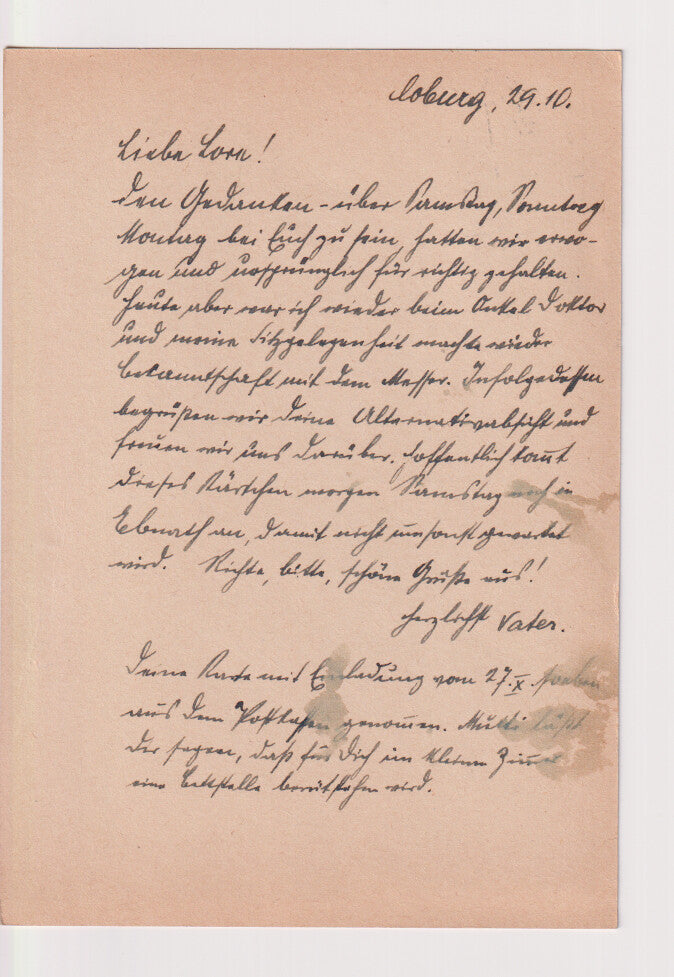 Coburg, 29.10.
Liebe Lore!
Den Gedanken - über Samstag, Sonntag
Montag bei Euch zu sein, hatten wir erwo-
gen und ursprünglich für richtig gehalten.
Heute aber war ich wieder beim Onkel Doktor
und meine Sitzgelegenheit machte wieder
Bekanntschaft mit dem Messer. Infolgedessen
begrüßen wir Deine Alternativabsicht und
freuen wir uns darüber. Hoffentlich kom̅t
dieses Kärtchen morgen Samstag noch in
Ebnath an, damit nicht umsonst gewartet
wird. Richte, bitte, schöne Grüße aus!
Herzlichst Vater.
Deine Karte mit Einladung vom 27.X. soeben
aus dem Postkasten genom̅en. Mutti läßt
Dir sagen, daß für Dich im kleinen Zim̅er
eine Bettstelle bereitstehen wird.